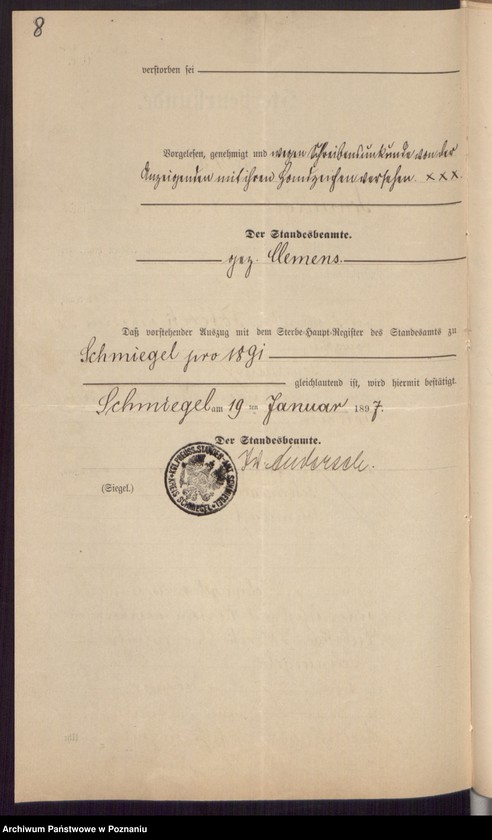 8
verstorben sei
Vorgelesen, genehmigt und wegen Schreibensunkunde von der
Anzeigenden mit ihren Handzeichen versehen. xxx.
Der Standesbeamte.
gez. Clemens.
Daß vorstehender Auszug mit dem Sterbe-Haupt-Register des Standesamts zu
Schmiegel pro 1891
gleichlautend ist, wird hiermit bestätigt.
Schmiegel am 19ten Januar 1897.
Der Standesbeamte.
(Siegel.)
KGL. PREUSS. STANDES-AMT SCHMIEGEL
KREIS SCHMIEGEL
Archiwum Państwowe w Poznaniu